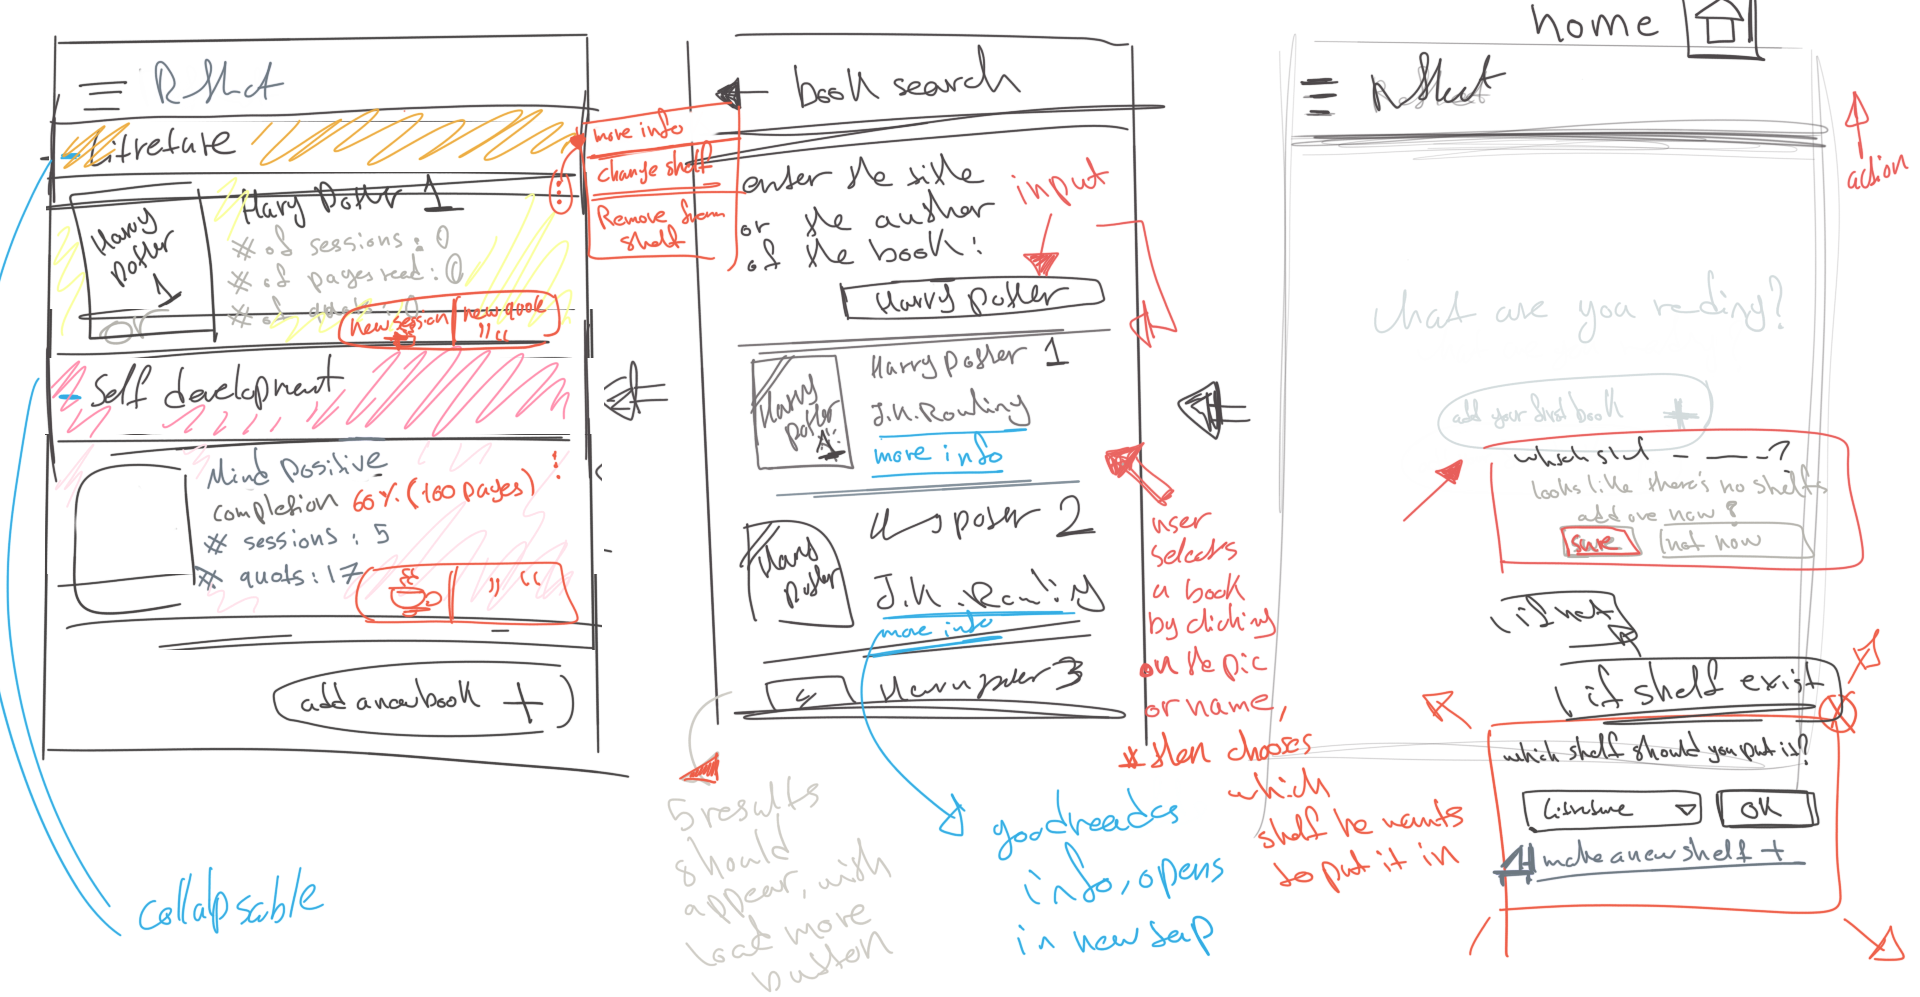 home
Litreture
Harry Potter 1
# of sessions : 0
# of pages read : 0
# of
new session
new quote
" "
Harry
Potter
1
more info
change shelf
Remove from
shelf
Self development
Mind Positive
completion 60% (160 pages)
# sessions : 5
# quots : 17
" "
add a new book +
collapsable
book search
enter the title
or the author
of the book :
input
Harry potter
Harry potter 1
J.K. Rowling
more info
Harry
potter
1
potter 2
J.K. Rowling
more info
Harry
potter
3
5 results
should
appear, with
load more
button
goodreads
info, opens
in new tap
user
selects
a book
by clicking
on the pic
or name,
* then chooses
which
shelf he wants
to put it in
action
what are you reading?
add your first book +
looks like there's no shelfs
add one now?
sure
not now
if not
if shelf exist
which shelf should you put it?
Litreture
OK
make a new shelf +